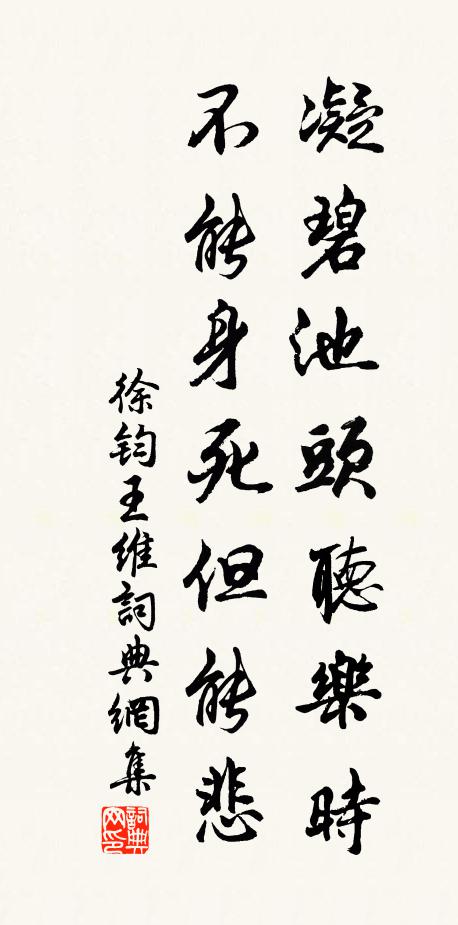 凝碧池頭聽樂時
不能身死但能悲
徐钧王維詞典網集
詞典网印